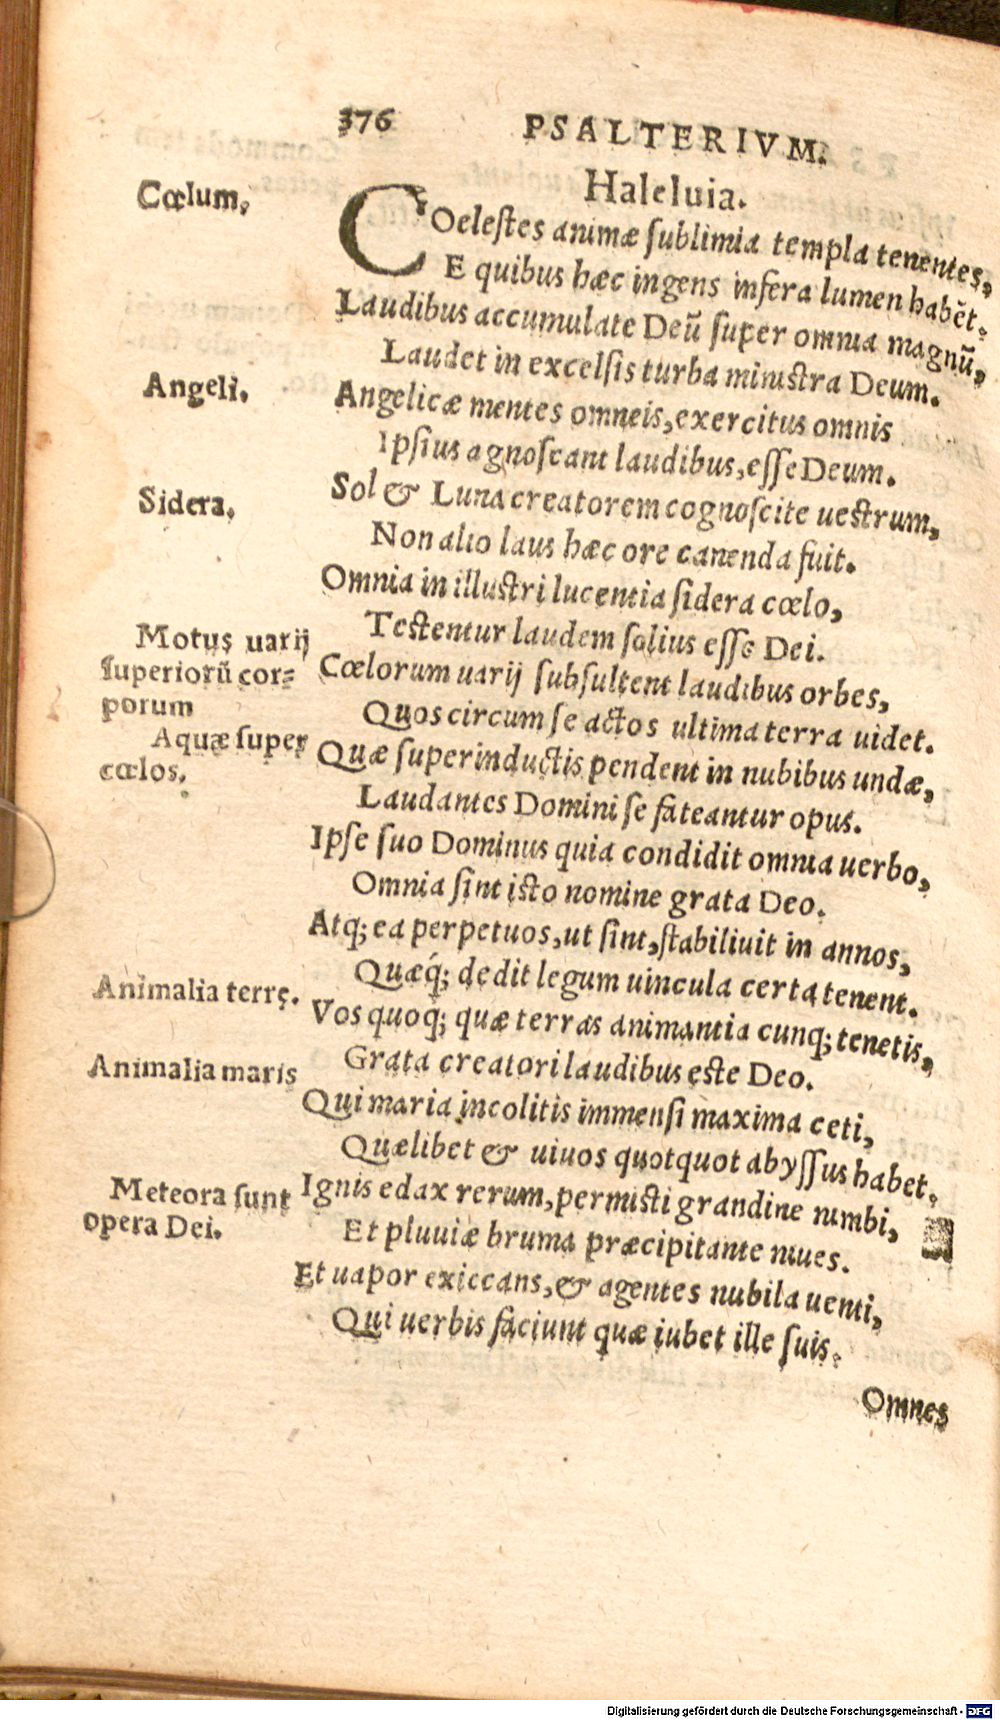 376 PSALTERIVM.
Haleluia.
Cœlum,
COeleſtes animæ ſublimia templa tenentes,
E quibus hæc ingens infera lumen habēt.
Laudibus accumulate Deū ſuper omnia magnū,
Laudet in excelſis turba miniſtra Deum.
Angeli.
Angelicæ mentes omneis, exercitus omnis
Ipſius agnoſcant laudibus, eſſe Deum.
Sidera.
Sol & Luna creatorem cognoſcite ueſtrum,
Non alio laus hæc ore canenda fuit.
Omnia in illuſtri lucentia ſidera cœlo,
Teſtentur laudem ſolius eſſe Dei.
Motus uarij
ſuperiorū cor-
porum
Cœlorum uarij ſubſultent laudibus orbes,
Quos circum ſe actos ultima terra uidet.
Aquæ ſuper
cœlos.
Quæ ſuperinductis pendent in nubibus undæ,
Laudantes Domini ſe fateantur opus.
Ipſe ſuo Dominus quia condidit omnia uerbo,
Omnia ſint iſto nomine grata Deo.
Atq; ea perpetuos, ut ſint, ſtabiliuit in annos,
Quæq́; dedit legum uincula certa tenent.
Animalia terrę.
Vos quoq; quæ terras animantia cunq; tenetis,
Grata creatori laudibus eſte Deo.
Animalia maris
Qui maria incolitis immenſi maxima ceti,
Quælibet & uiuos quotquot abyſſus habet.
Meteora ſunt
opera Dei.
Ignis edax rerum, permiſti grandine nimbi,
Et pluuiæ bruma præcipitante niues.
Et uapor exiccans, & agentes nubila uenti,
Qui uerbis faciunt quæ iubet ille ſuis.
Omnes
Digitalisierung gefördert durch die Deutsche Forschungsgemeinschaft - DFG